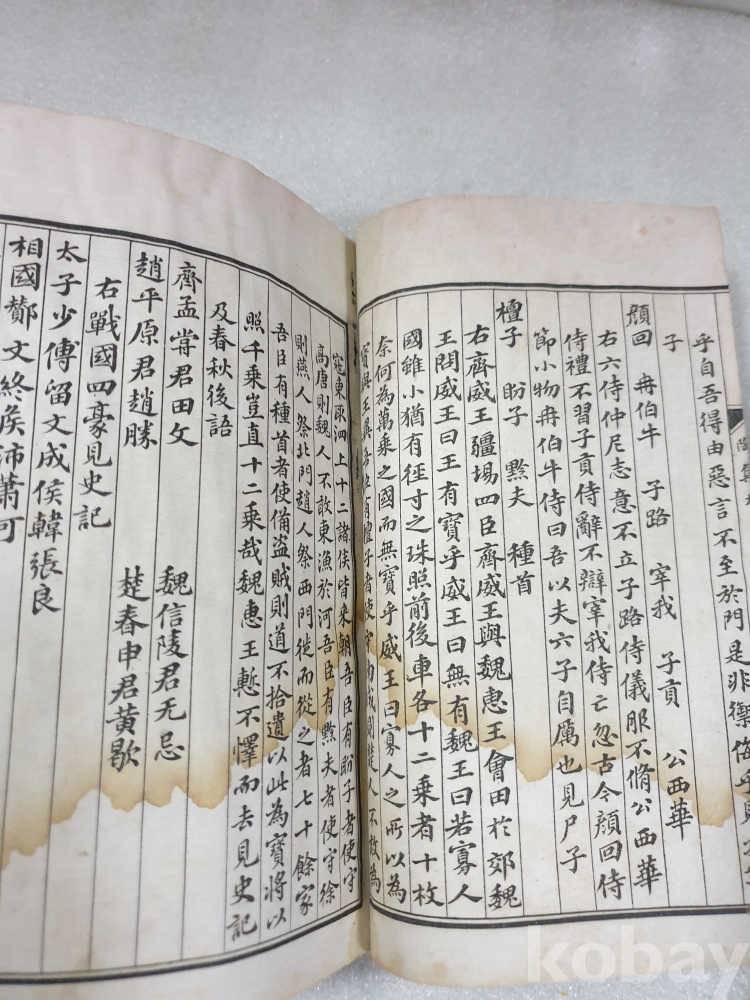 乎自吾得由惡言不至於門是非禦侮乎
子
顏回　冉伯牛　子路　宰我　子貢　公西華
右六侍仲尼志意不立子路侍儀服不脩公西華
侍禮不習子貢侍辭不辯宰我侍亡忽古今顏回侍
節小物冉伯牛侍曰吾以夫六子自厲也見尸子
檀子　盼子　黔夫　種首
右齊威王疆埸四臣齊威王與魏惠王會田於郊魏
王問威王曰王有寶乎威王曰無有魏王曰若寡人
國雖小猶有徑寸之珠照前後車各十二乘者十枚
奈何為萬乘之國而無寶乎威王曰寡人之所以為
寶與王異吾臣有檀子者使守南城則楚人不敢為
寇東取泗上十二諸侯皆來朝吾臣有盼子者使守
高唐則魏人不敢東漁於河吾臣有黔夫者使守徐
則燕人祭北門趙人祭西門徙而從之者七十餘家
吾臣有種首者使備盜賊則道不拾遺以此為寶將以
照千乘豈直十二乘哉魏惠王慙不懌而去見史記
及春秋後語
齊孟嘗君田文　魏信陵君无忌
趙平原君趙勝　楚春申君黃歇
右戰國四豪見史記
太子少傅留文成侯韓張良
相國酇文終侯沛蕭何
kobay